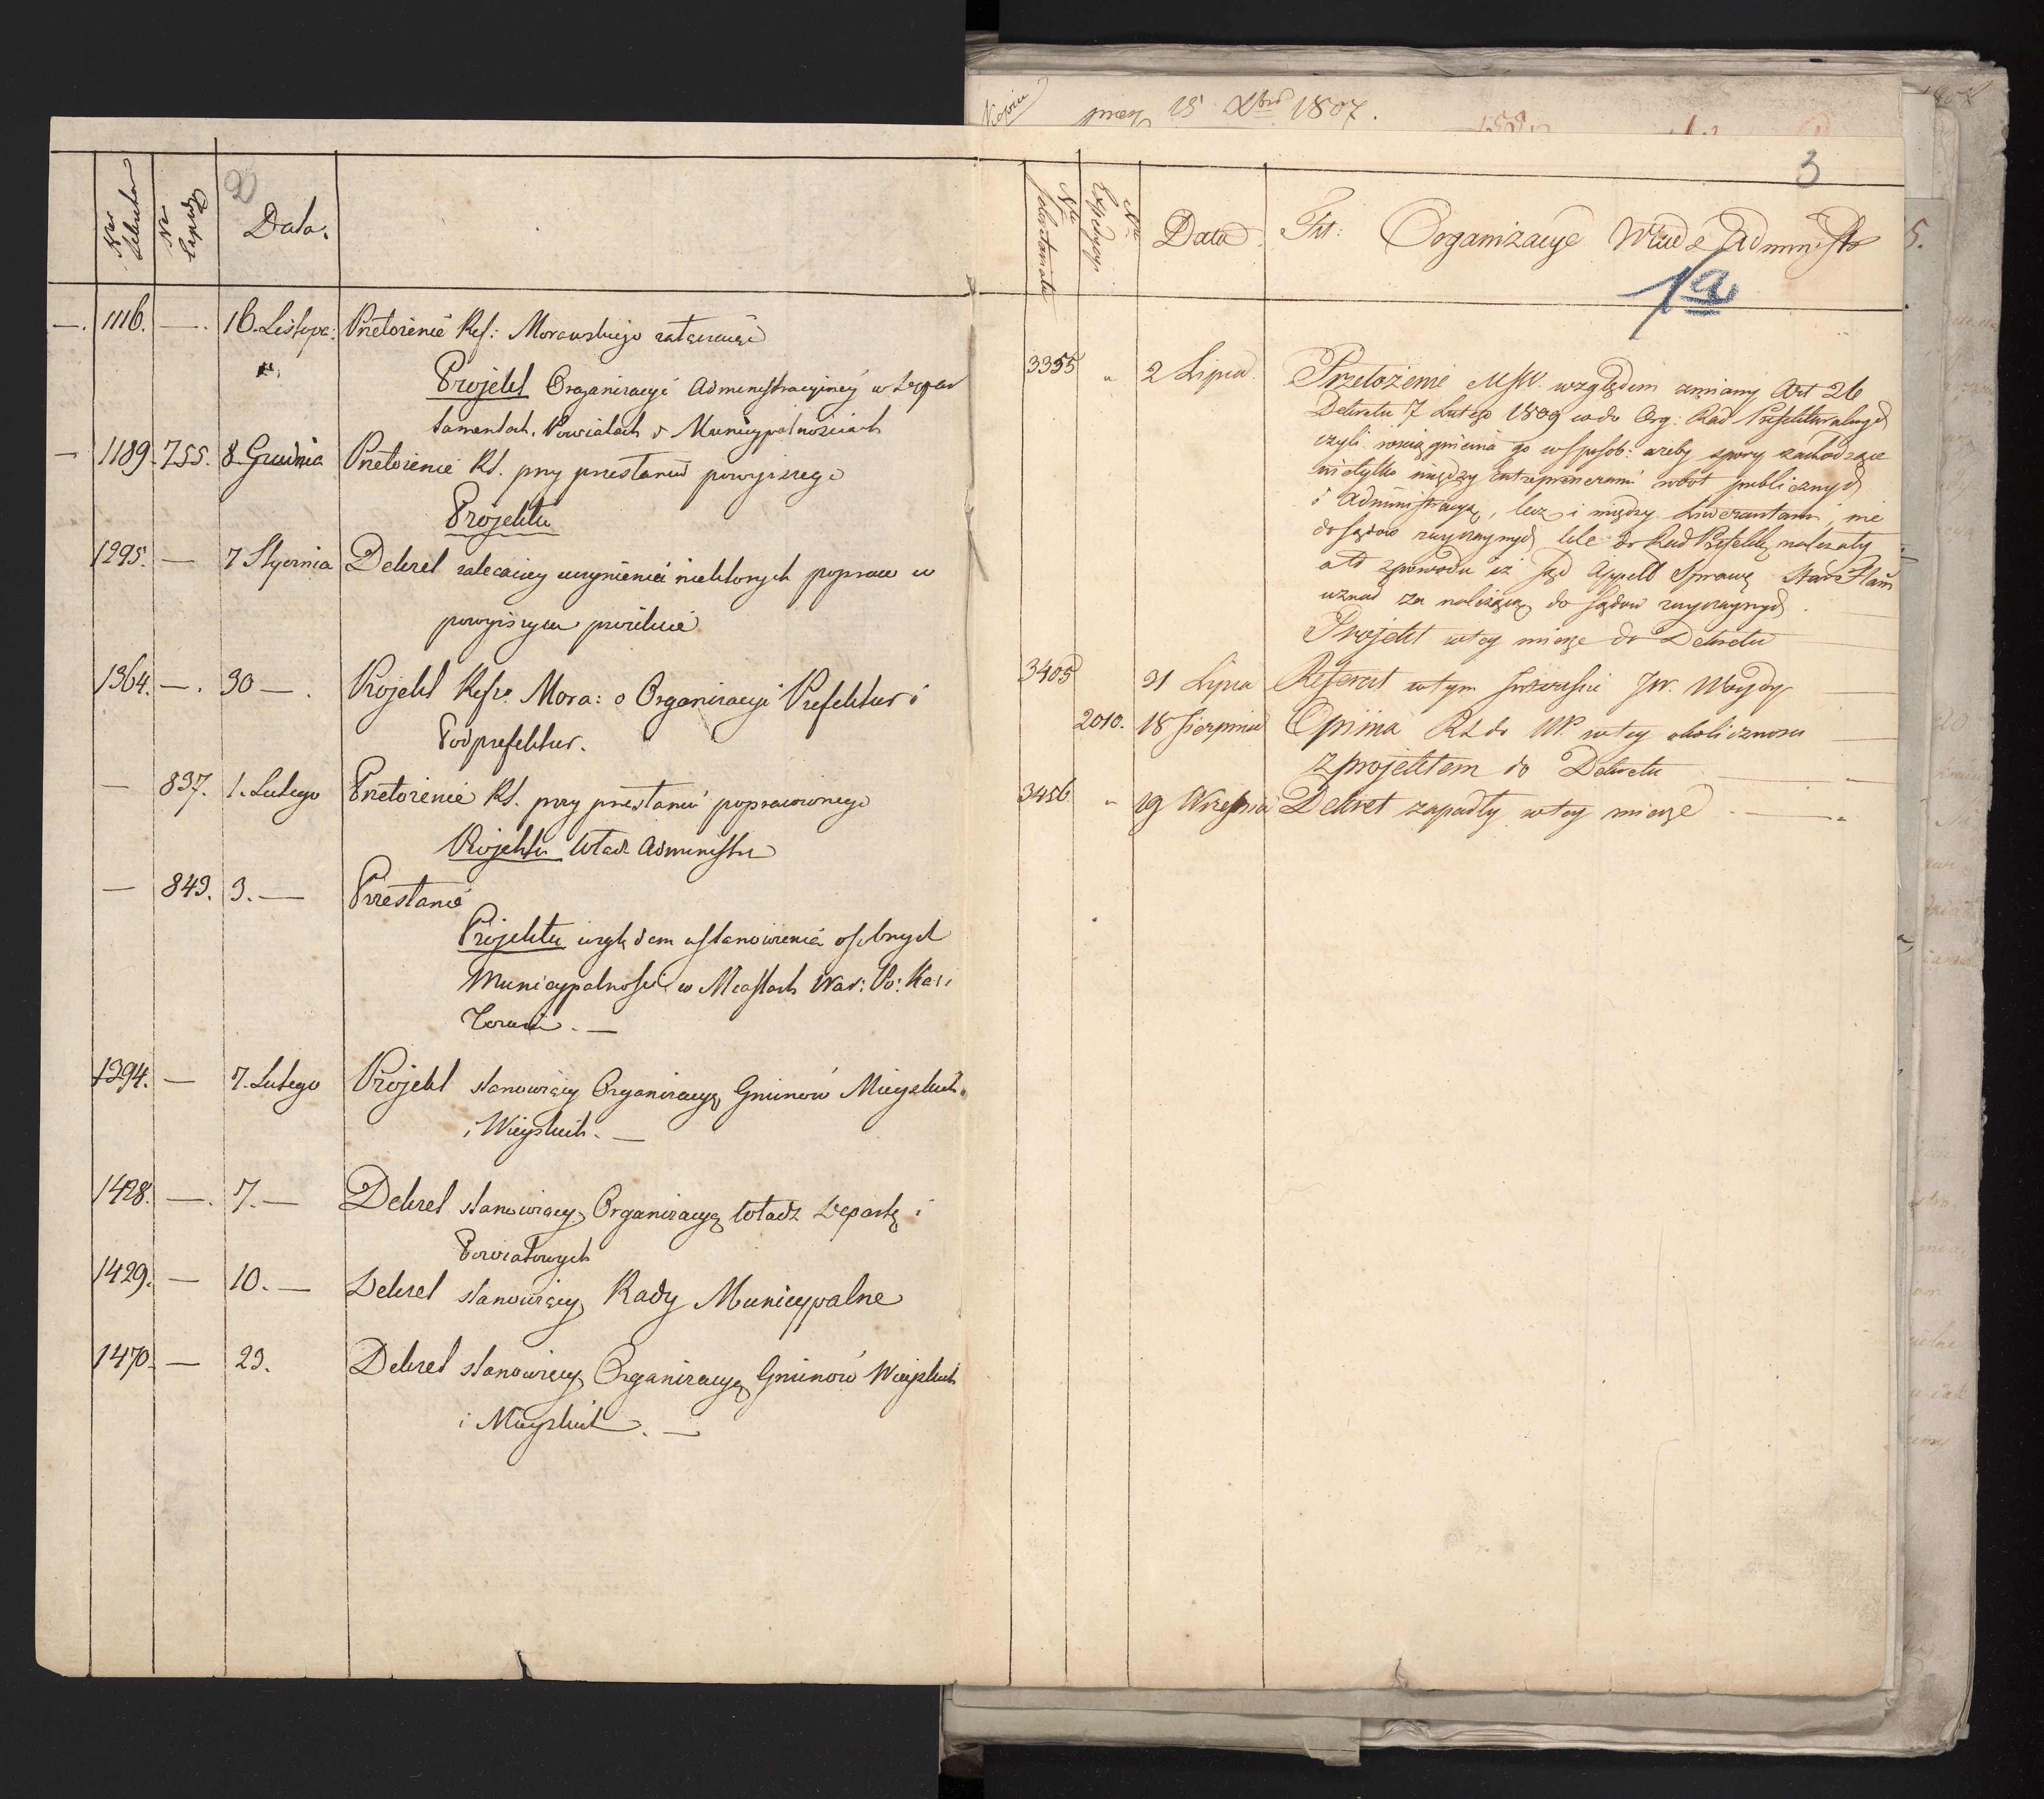 2
Nro Sekreta
Nr Expedy
Data.
1116. 16. Listopa: Przełożenie Ref: Morawskiego załączaiące
Projekt Organizacyi Administracyiney w Depar
tamentach, Powiatach i Municypalnościach
1189. 755. 8. Grudnia Przełożenie RS. przy przesłaniu powyższego
Projektu
1295. — 7 Stycznia Dekret zalecaiący uczynienie niektórych popraw w
powyższym proiekcie
1364. — 30 — Projekt Refre. Mora: o Organizacyi Prefektur i
Podprefektur.
— 837. 1. Lutego Przełożenie RS. przy przesłaniu poprawionego
Projektu Władz Administra
— 843. 3. — Przesłanie
Projektu względem ustanowienia osobnych
Municypalności w Miastach War: Po: Kal:
Toruniu. —
1394. — 7. Lutego Projekt stanowiący Organizacyą Gminów Mieyskich
i Wieyskich. —
1428. — 7. — Dekret stanowiący Organizacyą Władz Departa i
Powiatowych
1429. — 10. — Dekret stanowiący Rady Municypalne
1470. — 23. Dekret stanowiący Organizacyą Gminów Wieyskich
i Mieyskich. —
Kopia
praes 15 Xbris 1807.
3
Nro Sekretariatu
Nro Expedycyi
Data
Tit: Organizacye Władz Administr
1a
3355 " 2 Lipca Przełożenie MSW. względem zmiany Art 26
Dekretu 7 Lutego 1809 co do Org: Rad Prefekturalnych
czyli rosciągnienia go w sposób: ażeby spory zachodzące
nietylko między Entreprenerami robot publicznych
i Administracyą, lecz i między Liwerantami, nie
do sądow zwyczaynych lecz do Rad Prefektu należały
a to z powodu iż Sąd Appell Sprawę
uznał za należącą do Sądow zwyczaynych.
Projekt w tey mierze do Dekretu
3405 31 Lipca Referat w tym względzie JW. Woydy
2010. 18 Sierpnia Opinia RS do NP. w tey okoliczności
z projektem do Dekretu
3456 " 19 Września Dekret zapadły w tey mierze